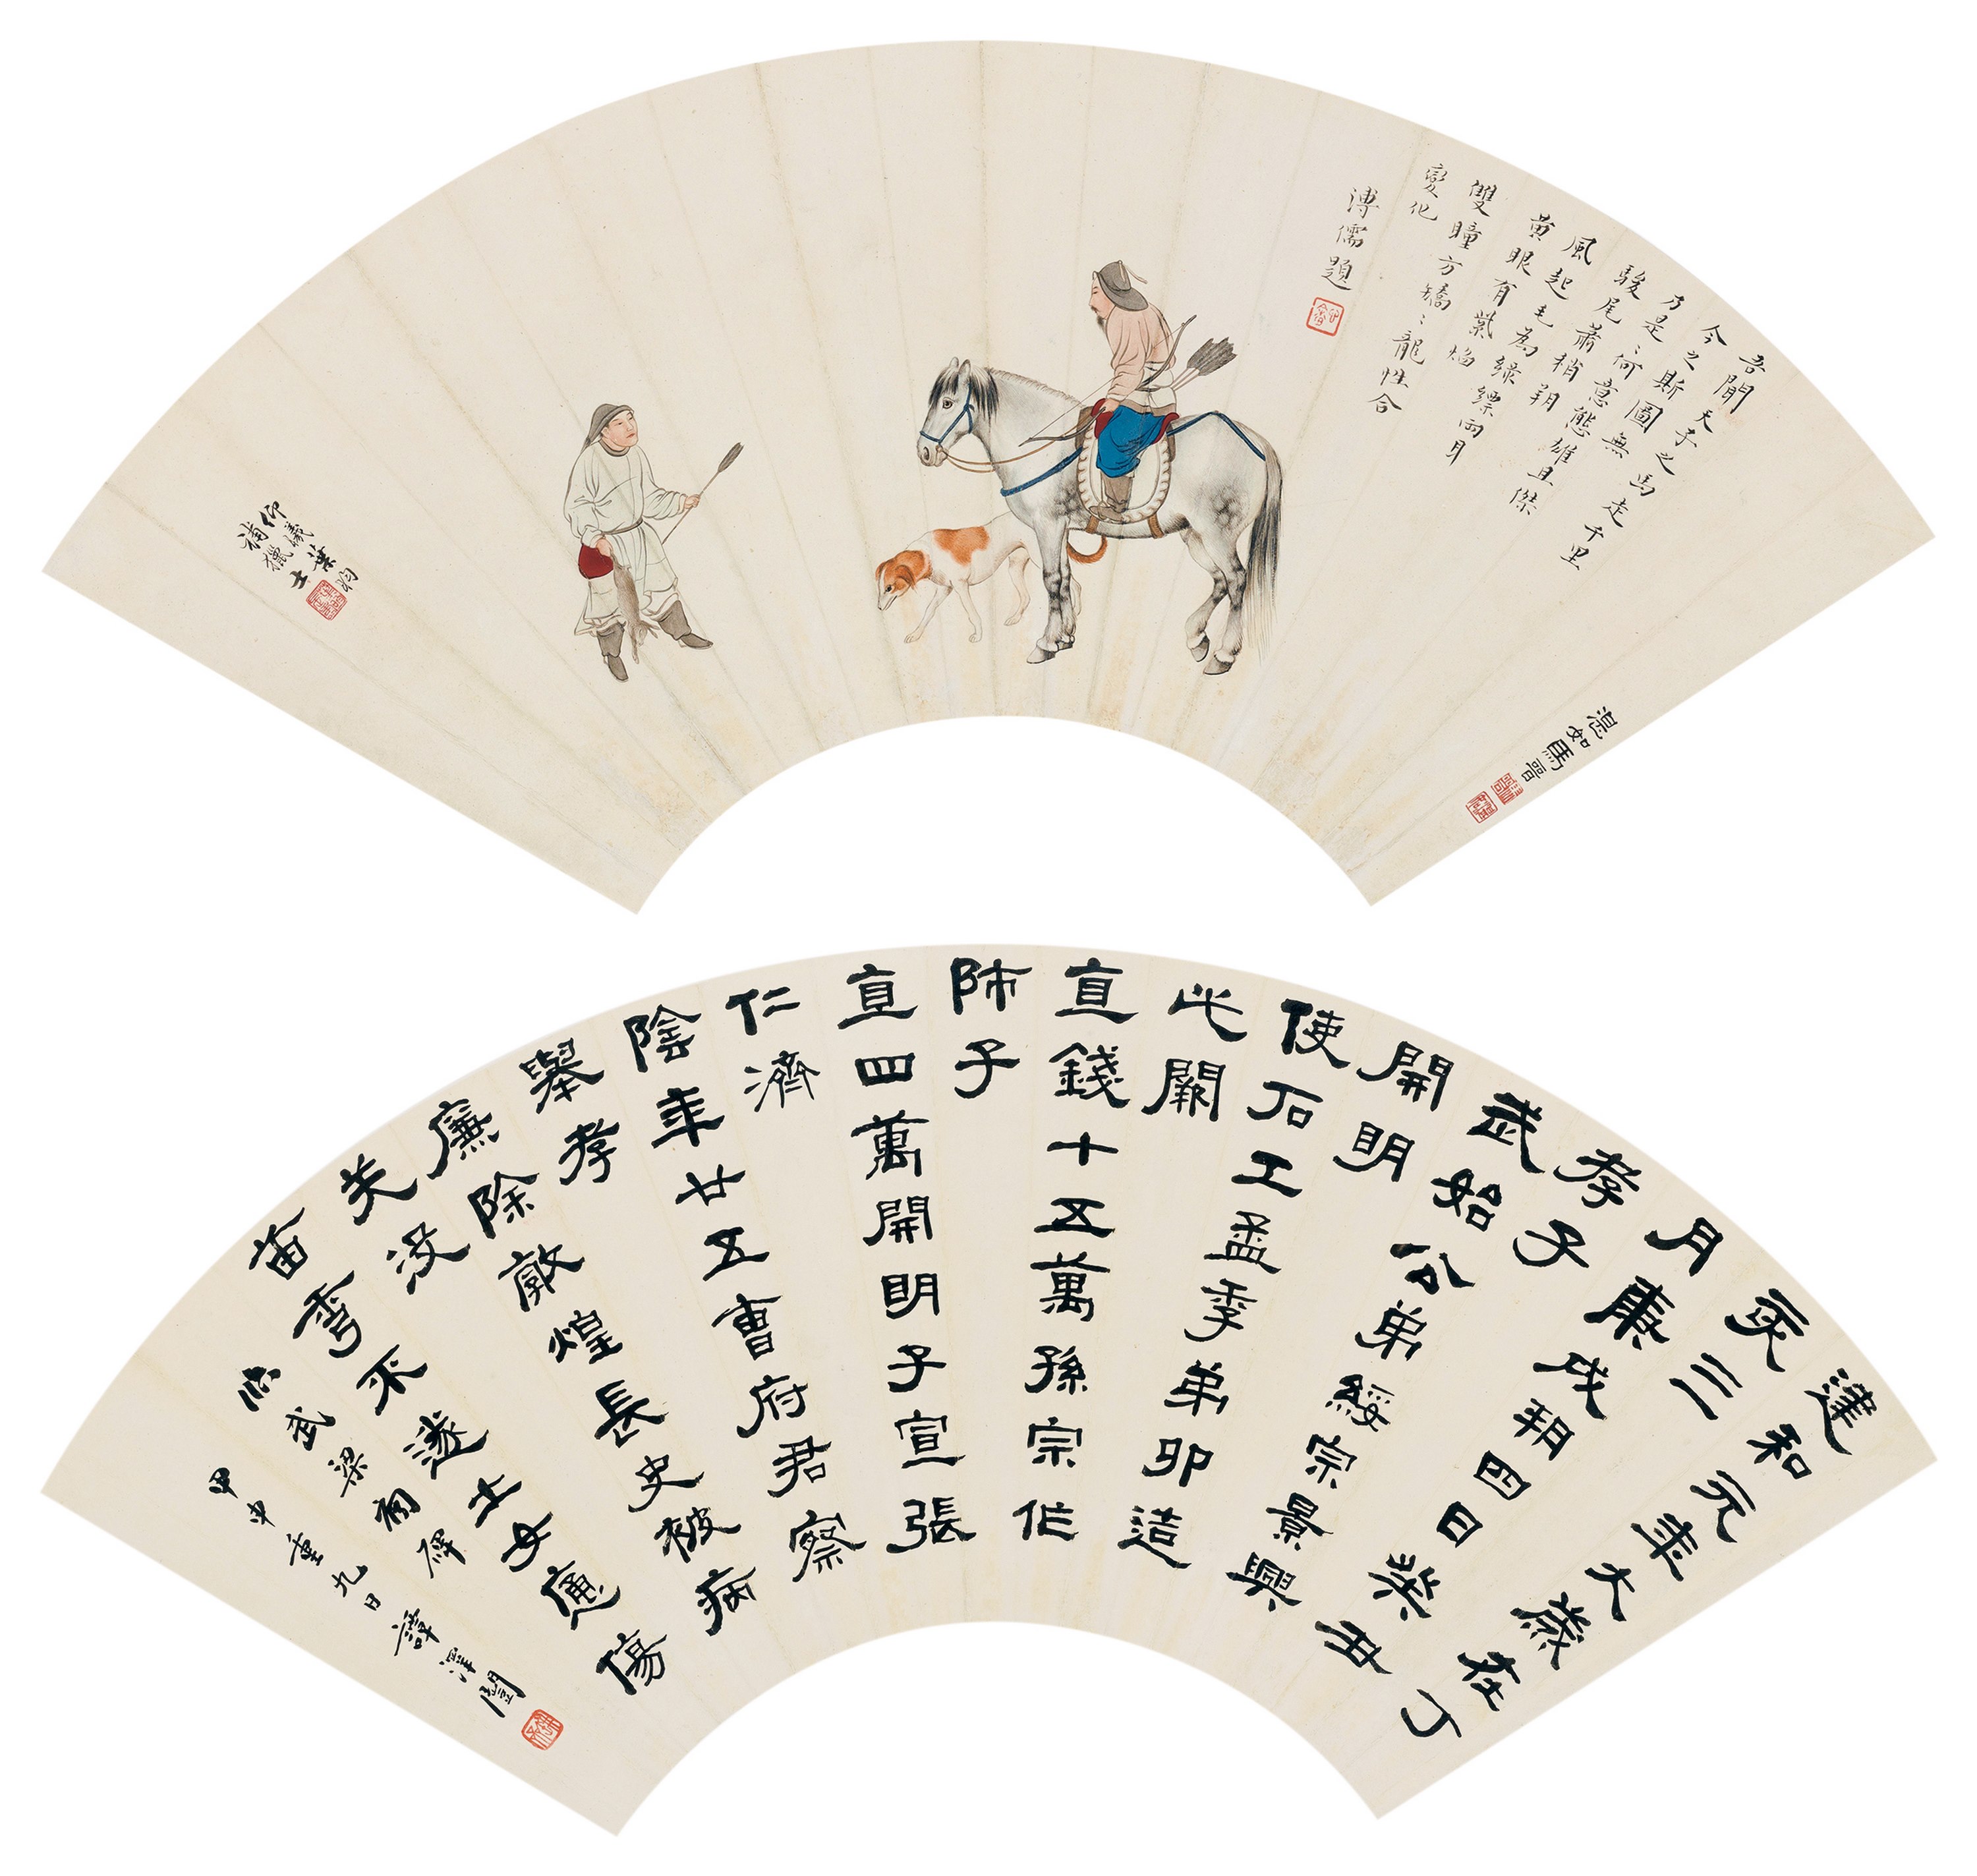 吾聞天子之馬走千里
今之斯圖無
乃是〻何意態雄且傑
駿尾蕭梢朔
風起毛為綠縹兩耳
黃眼有紫焰
雙瞳方矯〻龍性合
變化
溥儒題
湜如馬晉
仰曦葉昀
補獵士
建和元年大歲在丁
亥三
月庚戌朔四日癸丑
孝子
武始公弟綏宗景興
開明
使石工孟季弟卯造
此闕
直錢十五萬孫宗作
師子
直四萬開明子宣張
仁濟
陰年廿五曹府君察
舉孝
廉除敦煌長史被病
夭没
苗秀不遂士女痛傷
臨武梁祠碑
甲申重九日譚澤闓